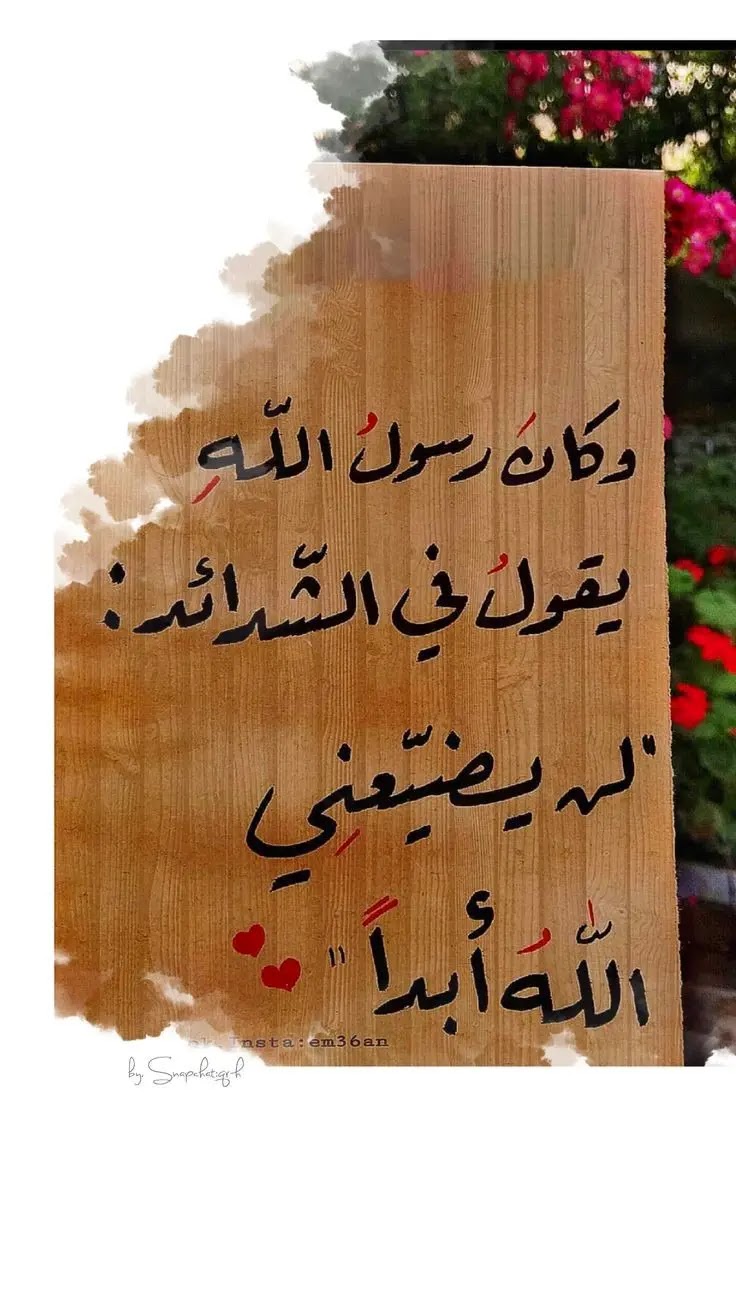 وكانَ رسولُ اللّهِ
يقولُ في الشّدائد :
"لن يضيّعنِي
اللّٰهُ أبداً "
Insta:em36an
by. Snapchat:qr-h